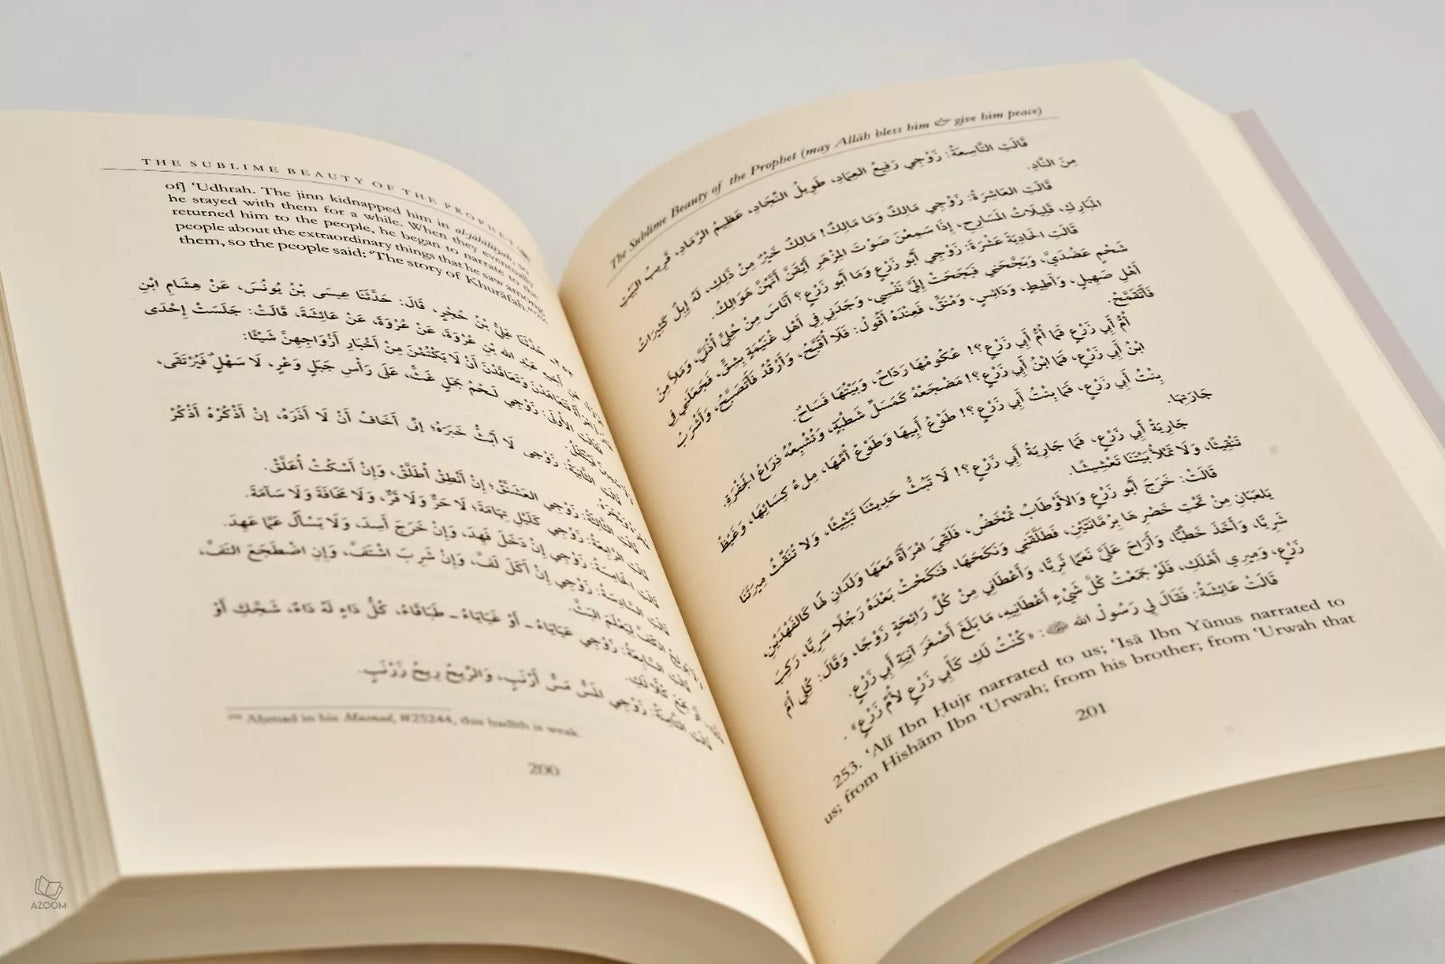 THE SUBLIME BEAUTY OF THE PROPHET
of] 'Udhrah. The jinn kidnapped him in al-jāhiliyyah, so
he stayed with them for a while. When they eventually
returned him to the people, he began to narrate to the
people about the extraordinary things that he saw among
them, so the people said: 'The story of Khurāfah,'"
حَدَّثَنَا عَلِيُّ بْنُ حُجْرٍ، قَالَ: حَدَّثَنَا عِيسَى بْنُ يُونُسَ، عَنْ هِشَامِ ابْنِ
عَنْ أَخِيهِ عَبْدِ الله بْنِ عُرْوَةَ، عَنْ عُرْوَةَ، عَنْ عَائِشَةَ، قَالَتْ: جَلَسَتْ إِحْدَى
فَتَعَاهَدْنَ وَتَعَاقَدْنَ أَنْ لَا يَكْتُمْنَ مِنْ أَخْبَارِ أَزْوَاجِهِنَّ شَيْئًا:
الأُولَى: زَوْجِي لَحْمُ جَمَلٍ غَثٍّ، عَلَى رَأْسِ جَبَلٍ وَعْرٍ، لَا سَهْلٌ فَيُرْتَقَى،
قَالَتِ الثَّانِيَةُ: زَوْجِي لَا أَبُثُّ خَبَرَهُ، إِنِّي أَخَافُ أَنْ لَا أَذَرَهُ، إِنْ أَذْكُرْهُ أَذْكُرْ
قَالَتِ الثَّالِثَةُ: زَوْجِي العَشَنَّقُ، إِنْ أَنْطِقْ أُطَلَّقْ، وَإِنْ أَسْكُتْ أُعَلَّقْ.
قَالَتِ الرَّابِعَةُ: زَوْجِي كَلَيْلِ تِهَامَةَ، لَا حَرٌّ وَلَا قُرٌّ، وَلَا مَخَافَةَ وَلَا سَآمَةَ.
قَالَتِ الخَامِسَةُ: زَوْجِي إِنْ دَخَلَ فَهِدَ، وَإِنْ خَرَجَ أَسِدَ، وَلَا يَسْأَلُ عَمَّا عَهِدَ.
قَالَتِ السَّادِسَةُ: زَوْجِي إِنْ أَكَلَ لَفَّ، وَإِنْ شَرِبَ اشْتَفَّ، وَإِنِ اضْطَجَعَ التَفَّ،
وَلَا يُولِجُ الكَفَّ لِيَعْلَمَ البَثَّ.
قَالَتِ السَّابِعَةُ: زَوْجِي عَيَايَاءُ - أَوْ غَيَايَاءُ - طَبَاقَاءُ، كُلُّ دَاءٍ لَهُ دَاءٌ، شَجَّكِ أَوْ
أَوْ جَمَعَ كُلًّا لَكِ.
قَالَتِ الثَّامِنَةُ: زَوْجِي المَسُّ مَسُّ أَرْنَبٍ، وَالرِّيحُ رِيحُ زَرْنَبٍ.
Aḥmad in his Musnad, #25244, this hadith is weak.
200
The Sublime Beauty of the Prophet (may Allāh bless him & give him peace)
قَالَتِ التَّاسِعَةُ: زَوْجِي رَفِيعُ العِمَادِ، طَوِيلُ النِّجَادِ، عَظِيمُ الرَّمَادِ، قَرِيبُ البَيْتِ
مِنَ النَّادِ.
قَالَتِ العَاشِرَةُ: زَوْجِي مَالِكٌ وَمَا مَالِكٌ! مَالِكٌ خَيْرٌ مِنْ ذَلِكِ، لَهُ إِبِلٌ كَثِيرَاتُ
المَبَارِكِ، قَلِيلَاتُ المَسَارِحِ، إِذَا سَمِعْنَ صَوْتَ المِزْهَرِ أَيْقَنَّ أَنَّهُنَّ هَوَالِكُ.
قَالَتِ الحَادِيَةَ عَشْرَةَ: زَوْجِي أَبُو زَرْعٍ وَمَا أَبُو زَرْعٍ؟ أَنَاسَ مِنْ حُلِيٍّ أُذُنَيَّ، وَمَلَأَ مِنْ
شَحْمٍ عَضُدَيَّ، وَبَجَّحَنِي فَبَجَحَتْ إِلَيَّ نَفْسِي، وَجَدَنِي فِي أَهْلِ غُنَيْمَةٍ بِشِقٍّ، فَجَعَلَنِي فِي
أَهْلِ صَهِيلٍ، وَأَطِيطٍ، وَدَائِسٍ، وَمُنَقٍّ، فَعِنْدَهُ أَقُولُ: فَلَا أُقَبَّحُ، وَأَرْقُدُ فَأَتَصَبَّحُ، وَأَشْرَبُ
فَأَتَقَمَّحُ.
أُمُّ أَبِي زَرْعٍ فَمَا أُمُّ أَبِي زَرْعٍ؟! عُكُومُهَا رَدَاحٌ، وَبَيْتُهَا فَسَاحٌ.
ابْنُ أَبِي زَرْعٍ، فَمَا ابْنُ أَبِي زَرْعٍ؟! مَضْجَعُهُ كَمَسَلِّ شَطْبَةٍ، وَتُشْبِعُهُ ذِرَاعُ الجَفْرَةِ.
بِنْتُ أَبِي زَرْعٍ، فَمَا بِنْتُ أَبِي زَرْعٍ؟! طَوْعُ أَبِيهَا وَطَوْعُ أُمِّهَا، مِلْءُ كِسَائِهَا، وَغَيْظُ
جَارَتِهَا.
جَارِيَةُ أَبِي زَرْعٍ، فَمَا جَارِيَةُ أَبِي زَرْعٍ؟! لَا تَبُثُّ حَدِيثَنَا تَبْثِيثًا، وَلَا تُنَقِّثُ مِيرَتَنَا
تَنْقِيثًا، وَلَا تَمْلَأُ بَيْتَنَا تَعْشِيشًا.
قَالَتْ: خَرَجَ أَبُو زَرْعٍ وَالأَوْطَابُ تُمْخَضُ، فَلَقِيَ امْرَأَةً مَعَهَا وَلَدَانِ لَهَا كَالفَهْدَيْنِ،
يَلْعَبَانِ مِنْ تَحْتِ خَصْرِهَا بِرُمَّانَتَيْنِ، فَطَلَّقَنِي وَنَكَحَهَا، فَنَكَحْتُ بَعْدَهُ رَجُلًا سَرِيًّا، رَكِبَ
شَرِيًّا، وَأَخَذَ خَطِّيًّا، وَأَرَاحَ عَلَيَّ نَعَمًا ثَرِيًّا، وَأَعْطَانِي مِنْ كُلِّ رَائِحَةٍ زَوْجًا، وَقَالَ: كُلِي أُمَّ
زَرْعٍ، وَمِيرِي أَهْلَكِ، فَلَوْ جَمَعْتُ كُلَّ شَيْءٍ أَعْطَانِيهِ، مَا بَلَغَ أَصْغَرَ آنِيَةِ أَبِي زَرْعٍ.
قَالَتْ عَائِشَةُ: فَقَالَ لِي رَسُولُ الله ﷺ: «كُنْتُ لَكِ كَأَبِي زَرْعٍ لأُمِّ زَرْعٍ».
253. 'Alī Ibn Ḥujr narrated to us; 'Īsā Ibn Yūnus narrated to
us; from Hishām Ibn 'Urwah; from his brother; from 'Urwah that
201
AZOOM